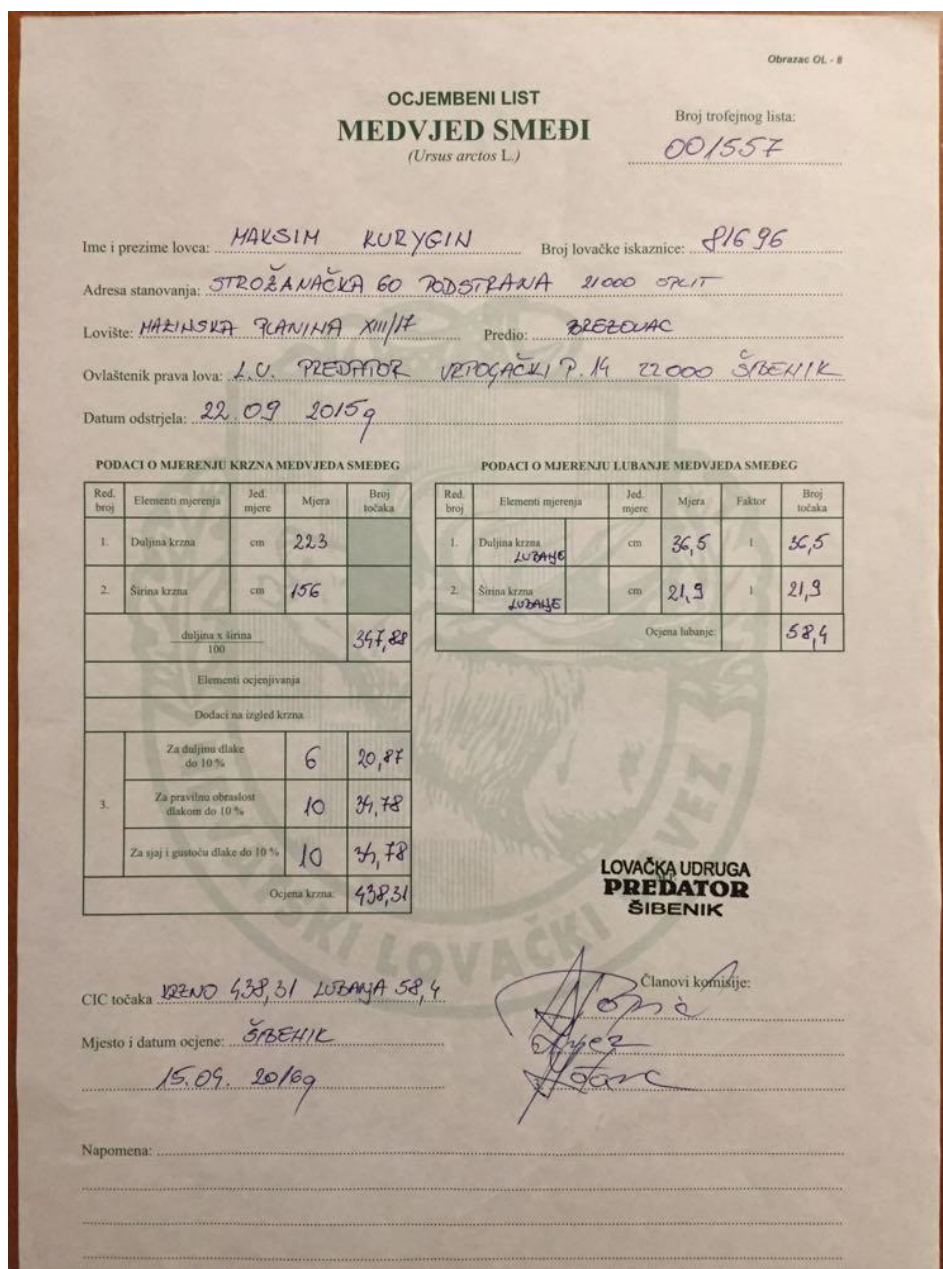 Obrazac OL - 8
OCJEMBENI LIST
MEDVJED SMEĐI
(Ursus arctos L.)
Broj trofejnog lista:
001557
Ime i prezime lovca: MAKSIM KURYGIN Broj lovačke iskaznice: 81696
Adresa stanovanja: STROŽANAČKA 60 PODSTRANA 21000 SPLIT
Lovište: MAZINSKA PLANINA XIII/17 Predio: BREZOVAC
Ovlaštenik prava lova: L.U. PREDATOR VRPOGAČKI P. 14 22000 ŠIBENIK
Datum odstrjela: 22.09 2015g
PODACI O MJERENJU KRZNA MEDVJEDA SMEĐEG
Red. broj Elementi mjerenja Jed. mjere Mjera Broj točaka
1. Duljina krzna cm 223
2. Širina krzna cm 156
duljina x širina
100
347,88
Elementi ocjenjivanja
Dodaci na izgled krzna
3.
Za duljinu dlake do 10 % 6 20,87
Za pravilnu obraslost dlakom do 10 % 10 34,78
Za sjaj i gustoću dlake do 10 % 10 34,78
Ocjena krzna: 438,31
PODACI O MJERENJU LUBANJE MEDVJEDA SMEĐEG
Red. broj Elementi mjerenja Jed. mjere Mjera Faktor Broj točaka
1. Duljina krzna LUBANJE cm 36,5 1 36,5
2. Širina krzna LUBANJE cm 21,9 1 21,9
Ocjena lubanje: 58,4
LOVAČKA UDRUGA
PREDATOR
ŠIBENIK
CIC točaka KRZNO 438,31 LUBANJA 58,4
Članovi komisije:
Mjesto i datum ocjene: ŠIBENIK
15.09. 2016g
Napomena:
LOVAČKI